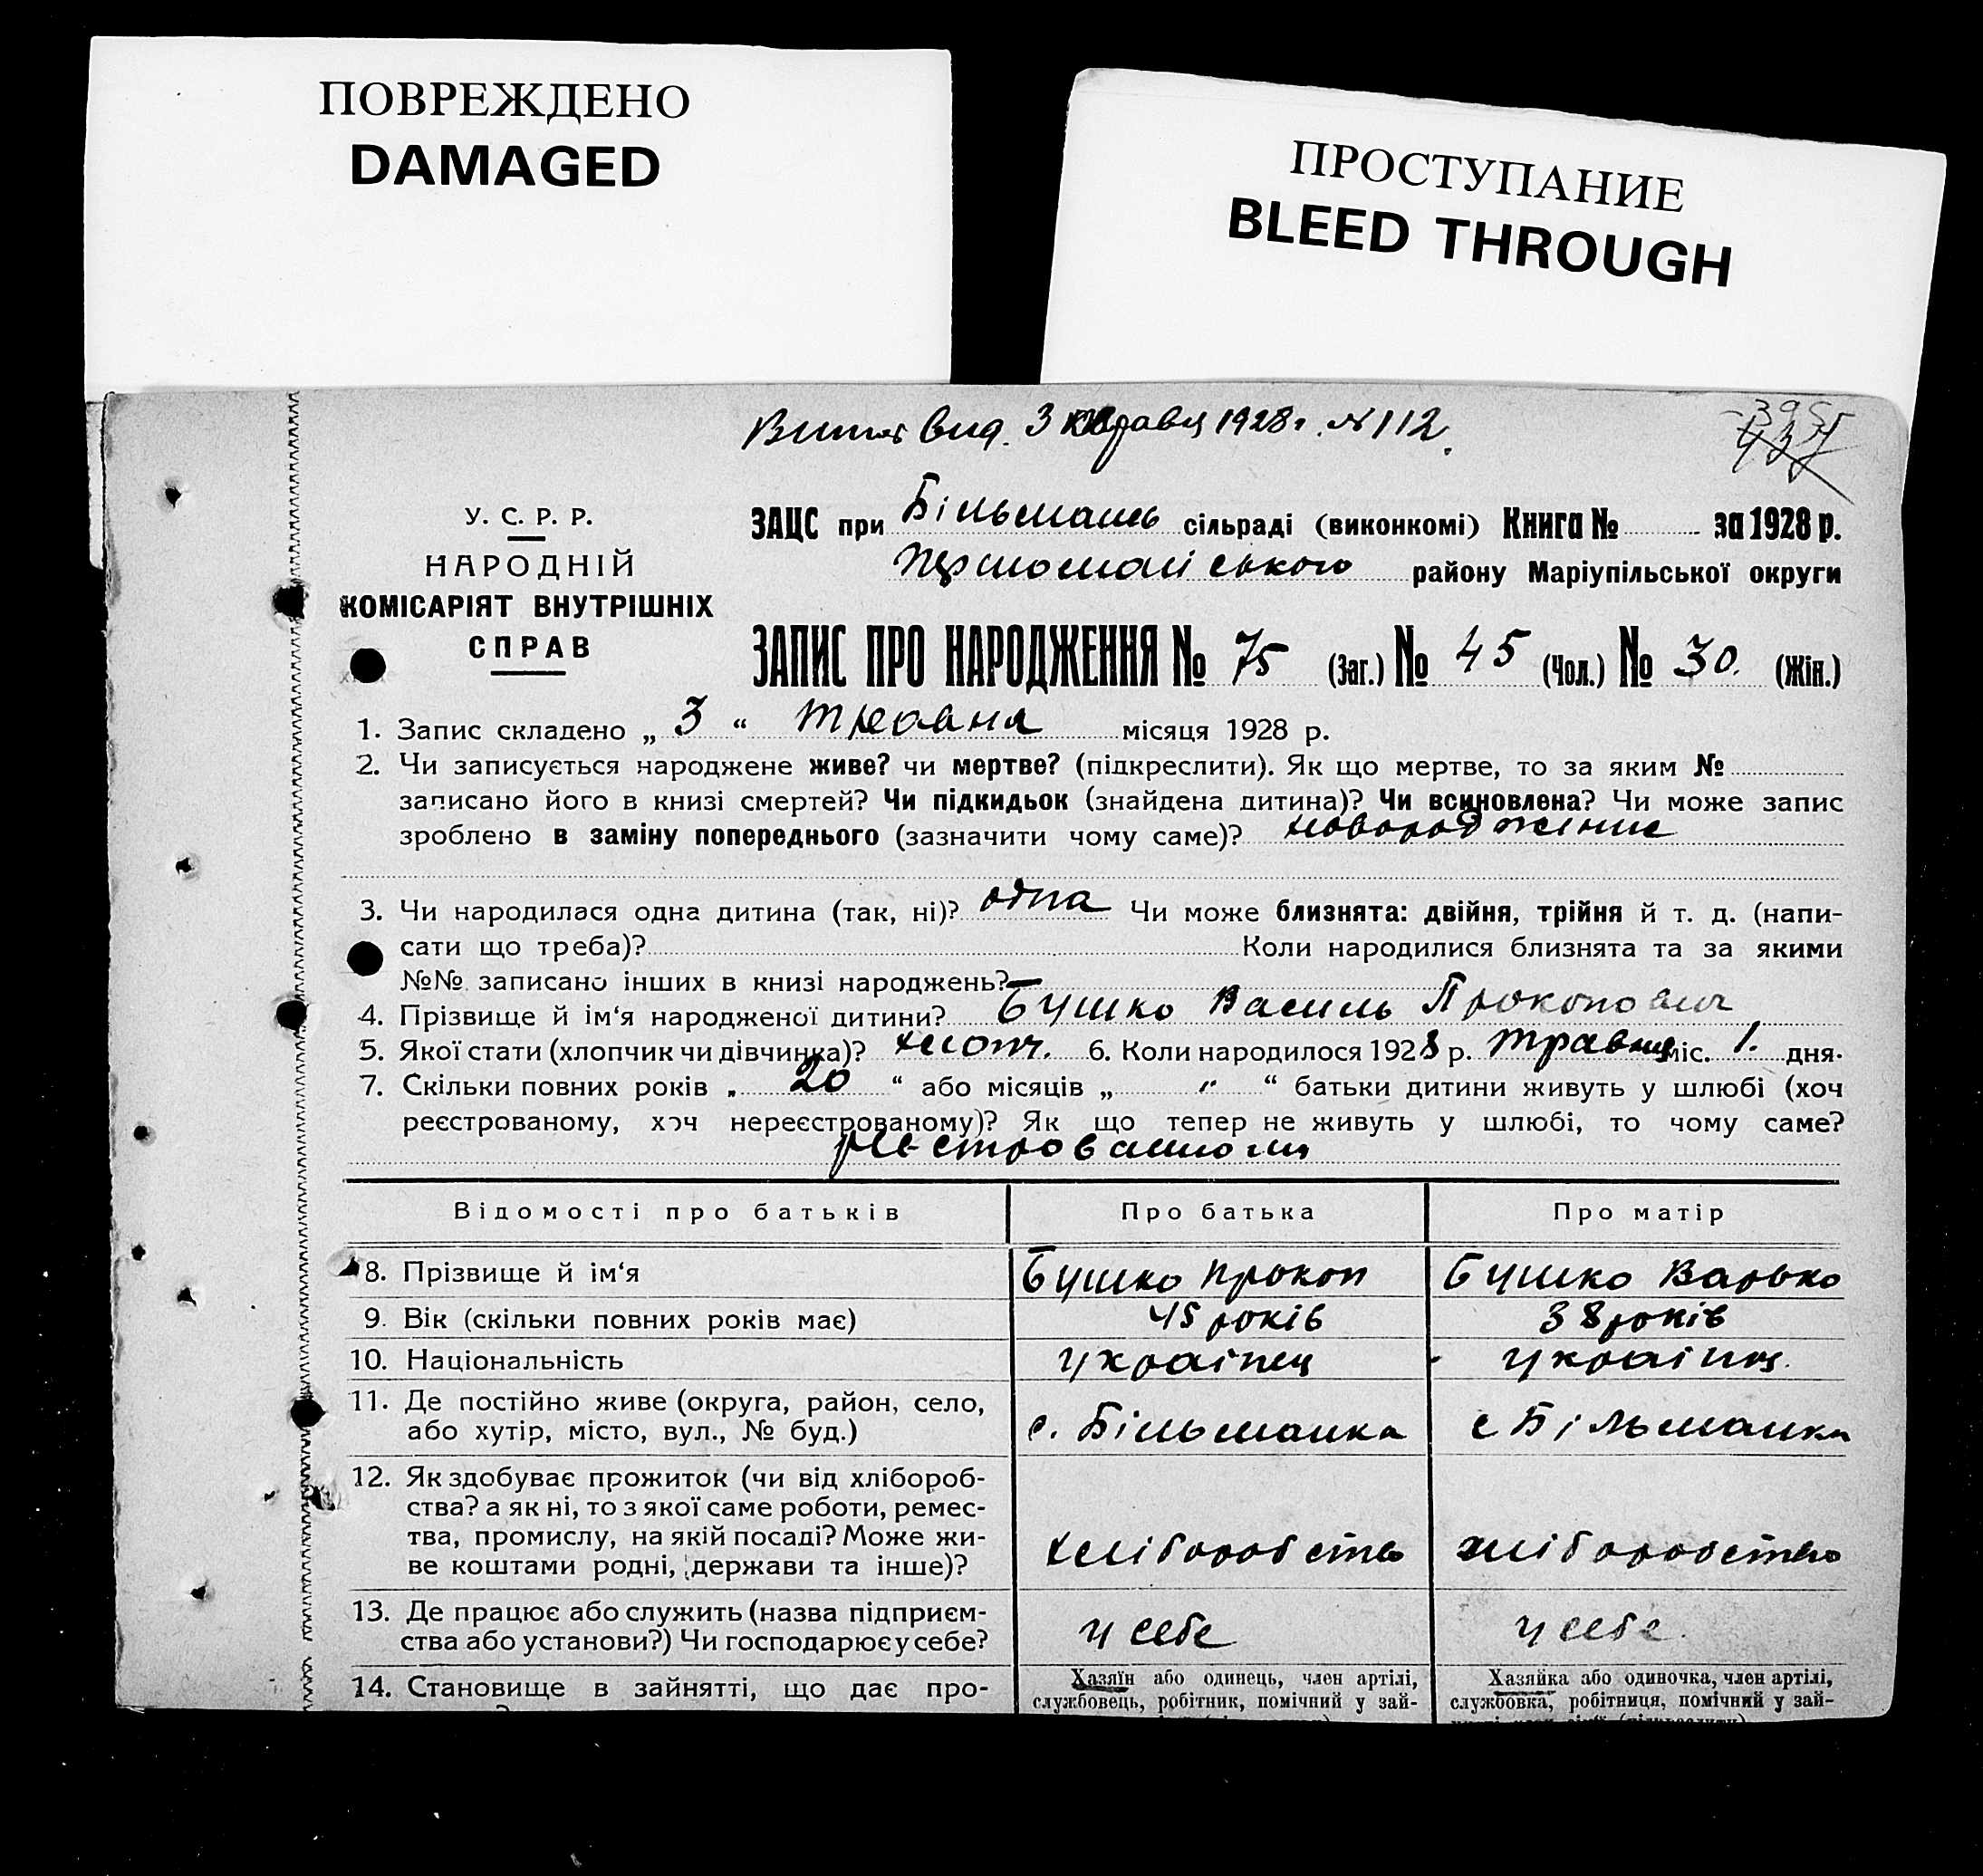 ПОВРЕЖДЕНО
DAMAGED
ПРОСТУПАНИЕ
BLEED THROUGH
вид. 3 травця 1928 г. № 112.
395
У. С. Р. Р.
НАРОДНІЙ
КОМІСАРІЯТ ВНУТРІШНІХ
СПРАВ
ЗАЦС при Більмань сільраді (виконкомі) Книга № за 1928 р.
Першомайського району Маріупільської округи
ЗАПИС ПРО НАРОДЖЕННЯ № 75 (Заг.) № 45 (Чол.) № 30. (Жін.)
1. Запис складено „ 3 “ травня місяця 1928 р.
2. Чи записується народжене живе? чи мертве? (підкреслити). Як що мертве, то за яким №
записано його в книзі смертей? Чи підкидьок (знайдена дитина)? Чи всиновлена? Чи може запис
зроблено в заміну попереднього (зазначити чому саме)?
3. Чи народилася одна дитина (так, ні)? одна Чи може близнята: двійня, трійня й т. д. (напи-
сати що треба)? Коли народилися близнята та за якими
№№ записано інших в книзі народжень?
4. Прізвище й ім‘я народженої дитини? Бушко Василь Прокопович
5. Якої стати (хлопчик чи дівчинка)? хлопч. 6. Коли народилося 1928 р. травня міс. 1. дня.
7. Скільки повних років „ 20 “ або місяців „ " “ батьки дитини живуть у шлюбі (хоч
реєстрованому, хоч нереєстрованому)? Як що тепер не живуть у шлюбі, то чому саме?
Відомості про батьків Про батька Про матір
8. Прізвище й ім‘я Бушко Прокоп Бушко Варька
9. Вік (скільки повних років має) 45 років 38 років
10. Національність українец українц.
11. Де постійно живе (округа, район, село,
або хутір, місто, вул., № буд.) с. Більманка с Більманка
12. Як здобуває прожиток (чи від хлібороб-
ства? а як ні, то з якої саме роботи, ремес-
тва, промислу, на якій посаді? Може жи-
ве коштами родні, держави та інше)? хліборобство хліборобство
13. Де працює або служить (назва підприєм-
ства або установи?) Чи господарює у себе? у себе у себе.
14. Становище в зайнятті, що дає про-
Хазяїн або одинець, член артілі,
службовець, робітник, помічний у зай-
Хазяйка або одиночка, член артілі,
службовка, робітниця, помічний у зай-